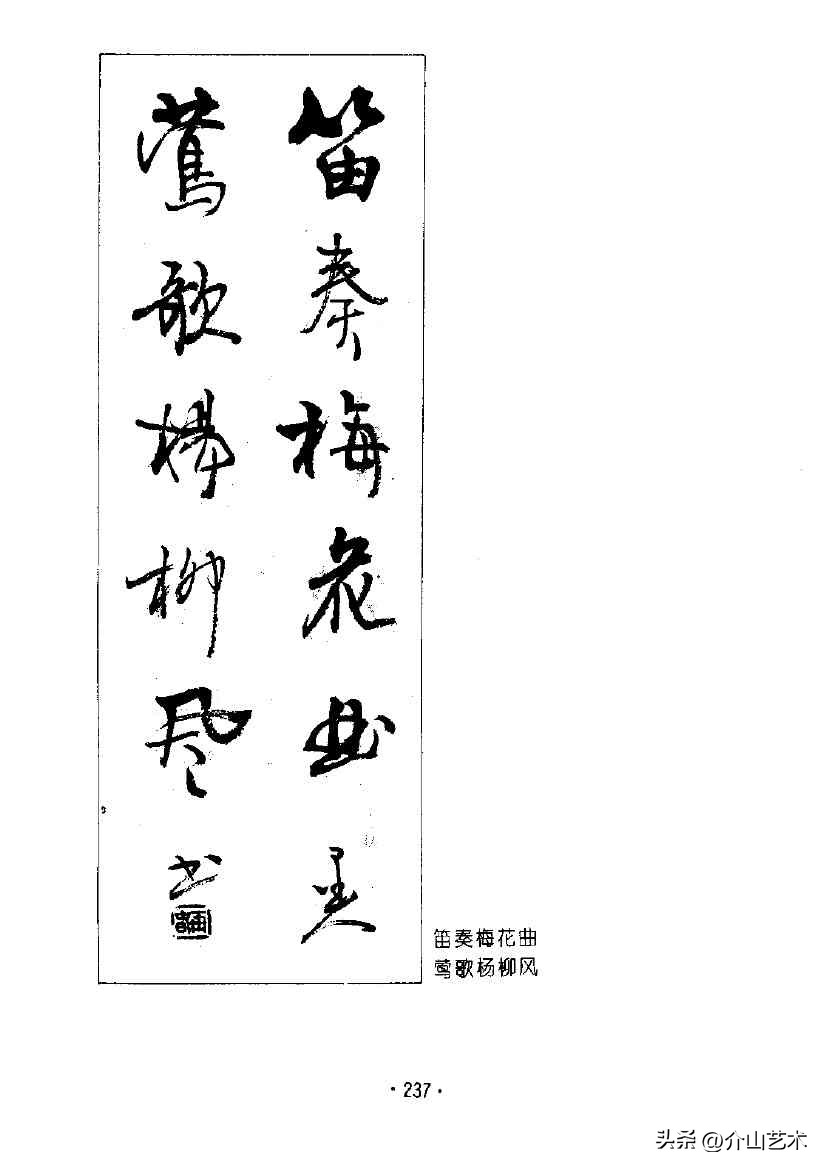 笛奏梅花曲
鶯歌楊柳風
书
笛奏梅花曲
莺歌杨柳风
·237·
头条 @介山艺术